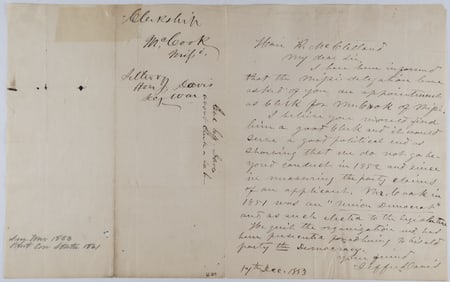 Clerkship
McCook
Missi.
Letter of
Hon. J. Davis
Sey War
Sey War 1853
Hon R. McClelland
My dear Sir,
I have been informed
that the Missi. delegation have
asked of you an appointment
as Clerk for Mr. Cook of Missi.
I believe you would find
him a good Clerk and it would
serve a good political end as
showing that we do not go be-
yond conduct in 1852 and since
in measuring the party claims
of an applicant. Mr. Cook in
1851 was an "Union Democrat"
and as such elected to the legislature
He quit the organization and has
been persecuted for adhering to his old
party the Democracy.
Your friend
Jeffn. Davis
17th Dec. 1853